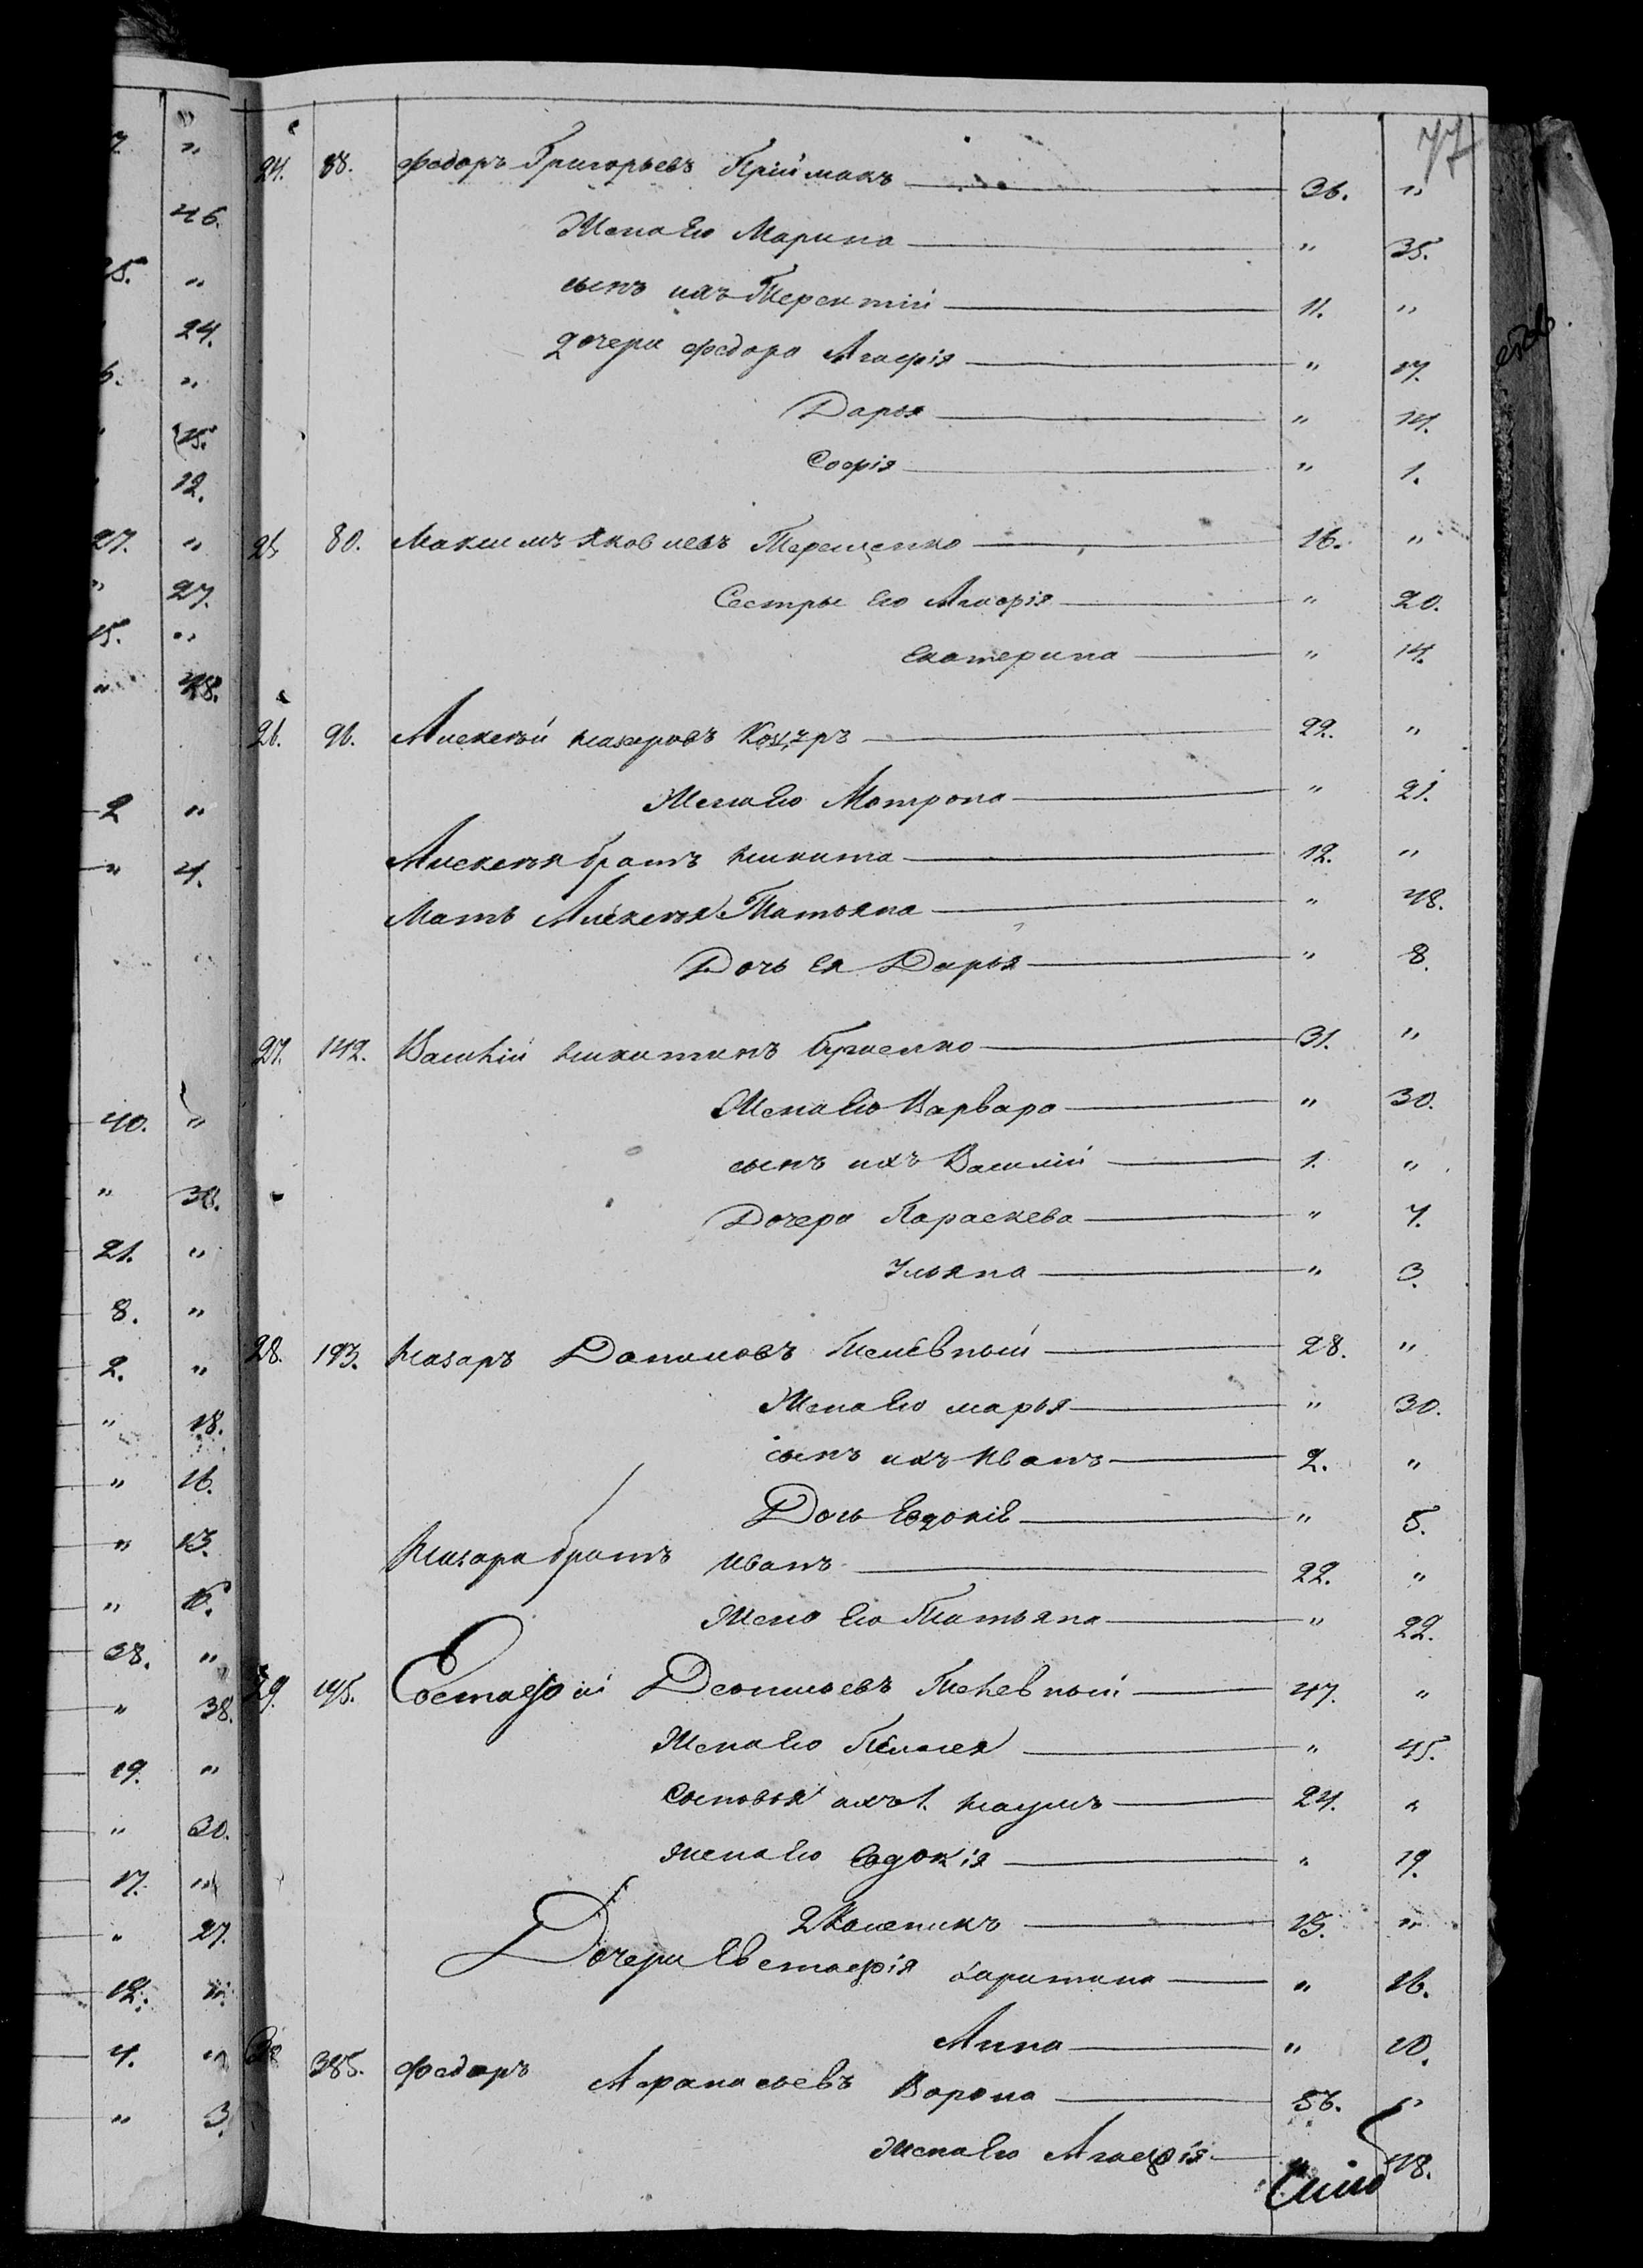 77
24. 88. Федоръ Григорьевъ Приймакъ 36. "
Жена Его Марина " 35.
сынъ ихъ Терентій 11. "
дочери Федора Агафія " 17.
Дарья " 14.
Софія " 1.
25 80. Максимъ Яковлевъ Терещенко 16. "
Сестры Его Агафія " 20.
Екатерина " 14.
26. 96. Алексѣй Назаровъ Коцаръ 22. "
Жена Его Матрона " 21.
Алексѣя братъ Никита 12. "
Мать Алексѣя Татьяна " 48.
Дочь Ея Дарья " 8.
27. 142. Василій Никитинъ 31. "
Жена Его Варвара " 30.
сынъ ихъ Василий 1. "
Дочери Параскева " 7.
Ульяна " 3.
28. 193. Назаръ Даниловъ 28. "
Жена Его Марья " 30.
сынъ ихъ Иванъ 2. "
Дочь Евдокія " 5.
Назара братъ Иванъ 22. "
Жена Его Татьяна " 22.
29. 195. Евстафій Леонтьевъ 47. "
Жена Его Пелагея " 45.
Сыновья ихъ 1. Наумъ 24. "
Жена Его Евдокія " 19.
2 Каленикъ 13. "
Дочери Евстафія Харитина " 16.
Анна " 10.
385. Федоръ Афанасьевъ Ворона 56. "
Жена Его Агафія " 48.
46.
25. "
24.
"
15.
12.
27. "
" 27.
15. "
" 48.
2 "
" 4.
40. "
" 38.
21. "
8. "
2. "
" 18.
" 16.
" 13.
"
38. "
" 38.
19. "
" 30.
17. "
" 27.
12. "
4. "
" 3.